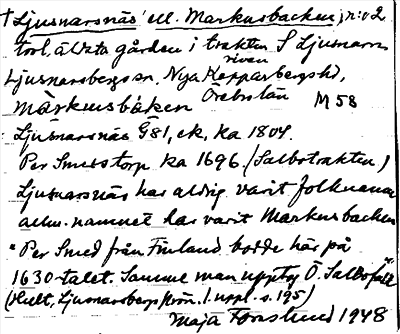 † Ljusnarsnäs ell. Markusbacken, n:o 2
torl. äldsta gården i trakten S Ljusnaren
riven
Ljusnarsbergs sn, Nya Kopparbergs hd,
Örebro län
màrkusbáken M58
Ljusnarsnäs G81, ek. ka 1804.
Per Smess torp ka 1696. (Salbotrakten)
Ljusnarsnäs har aldrig varit folknamn
allm. namnet har varit Markusbacken
"Per Smed från Finland bodde här på
1630-talet. Samme man upptog Ö. Salbo
(Hult, Ljusnarsbergs krön., 1. uppl. s. 195)
Maja Forslund 1948